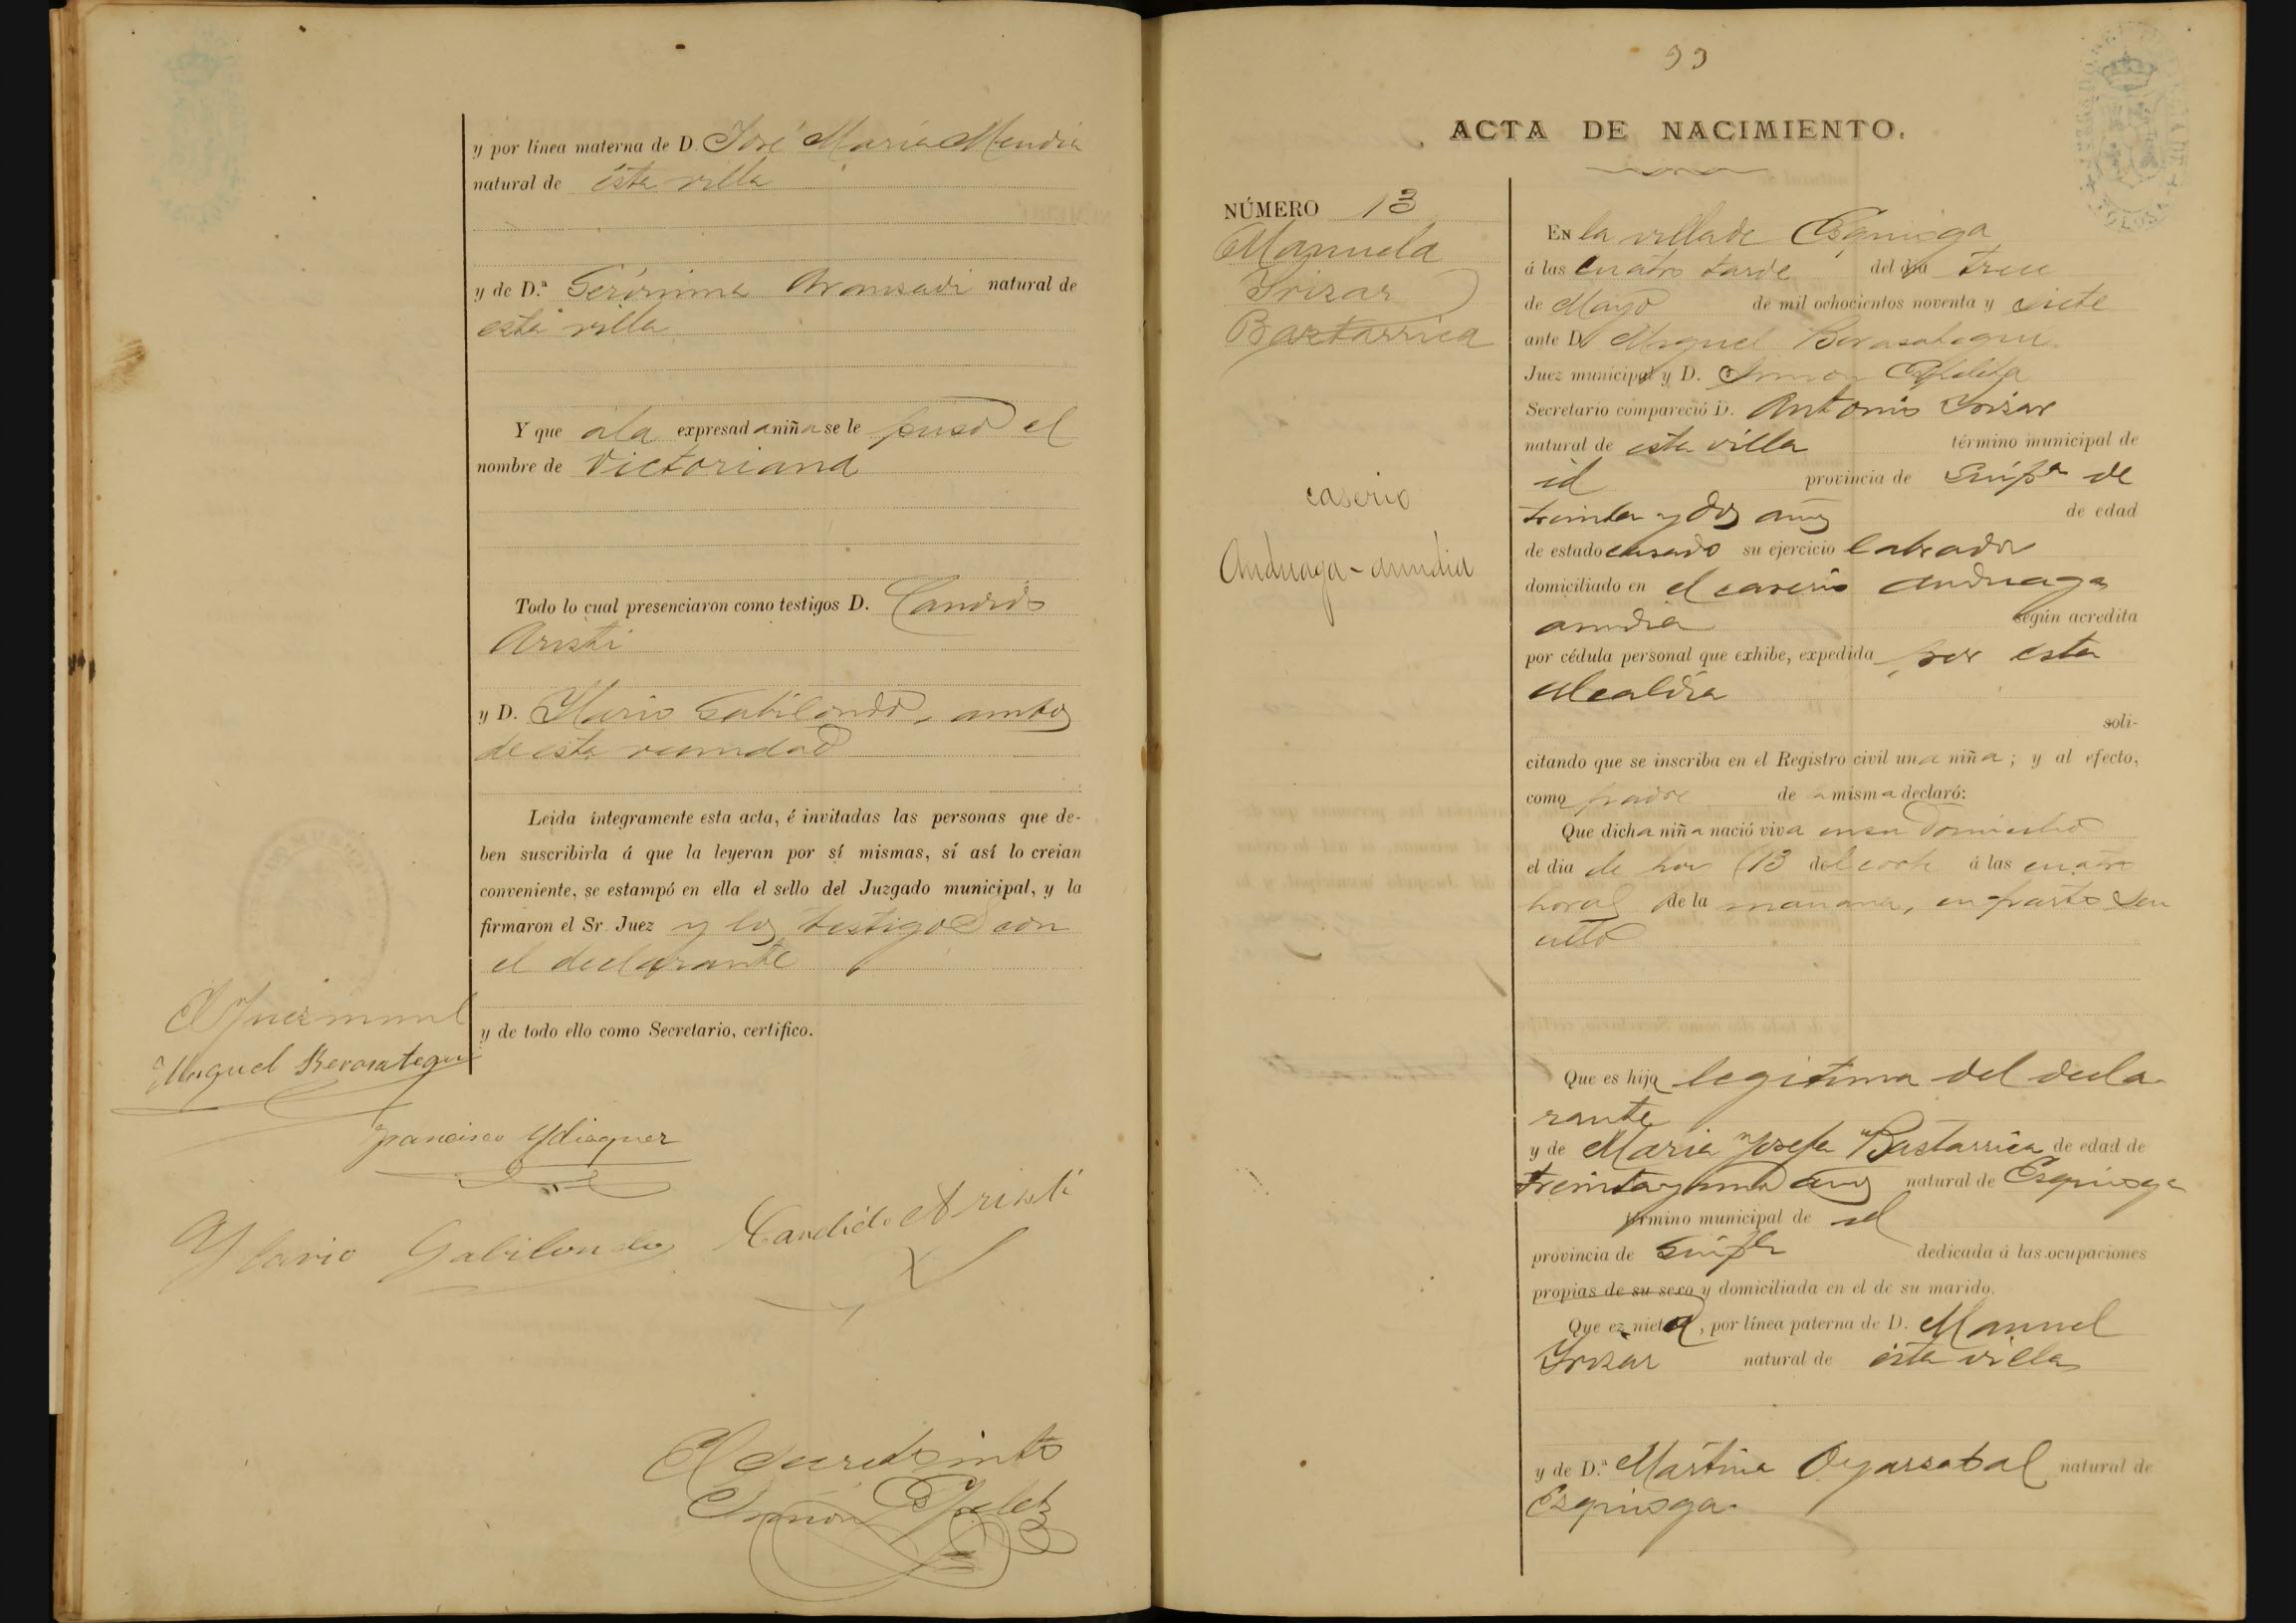 y por línea materna de D. José María Mendia
natural de ésta villa
y de D.ª Gerónima Aramsadi natural de
esta villa
Y que á la expresada niña se le puso el
nombre de Victoriana
Todo lo cual presenciaron como testigos D. Candido
Aristi
y D. Ylario Gabilondo, ambos
de esta vecindad
Leida íntegramente esta acta, é invitadas las personas que de-
ben suscribirla á que la leyeran por sí mismas, sí así lo creian
conveniente, se estampó en ella el sello del Juzgado municipal, y la
firmaron el Sr. Juez y los testigos con
el declarante
y de todo ello como Secretario, certifico.
El Juez munl
Miguel Berasategui
Francisco Ydiaquez
Ylario Gabilondo Candido Aristi
El Secret
Simon Ezpeleta
99
ACTA DE NACIMIENTO.
NÚMERO 13
Manuela
Irizar
Bastarrica
caserio
Anduaga-aundia
EN la villa de Ezquioga
á las cuatro tarde del dia trece
de Mayo de mil ochocientos noventa y siete
ante D. Miguel Berasategui
Juez municipal y D. Simon Ezpeleta
Secretario compareció D. Antonio Irizar
natural de esta villa término municipal de
id provincia de Guipª de
treinta y dos años de edad
de estado casado su ejercicio labrador
domiciliado en el caserio Anduaga
aundia según acredita
por cédula personal que exhibe, expedida por esta
alcaldia
soli-
citando que se inscriba en el Registro civil una niña; y al efecto,
como padre de la misma declaró:
Que dicha niña nació viva en su domicilio
el dia de hoy 13 del corte á las cuatro
horas de la mañana, en parto sen
cillo
Que es hija legitima del decla-
rante
y de Maria Josefa Bastarrica de edad de
treinta y un años natural de Ezquioga
término municipal de id
provincia de Guipª dedicada á las ocupaciones
propias de su sexo y domiciliada en el de su marido.
Que es nieta, por línea paterna de D. Manuel
Irizar natural de ésta villa
y de D.ª Martina Oyarzabal natural de
Ezquioga.